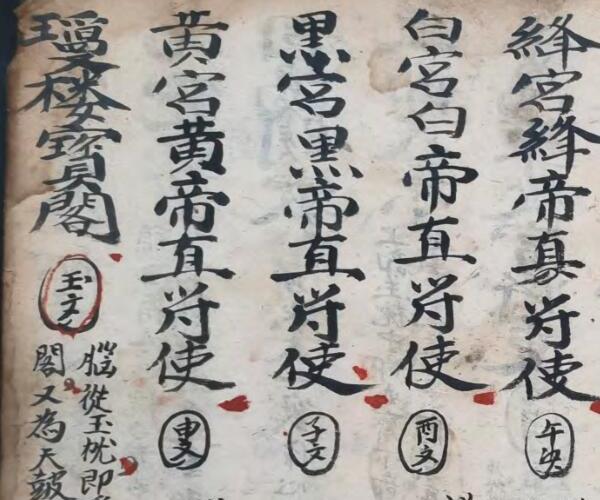 絳宮絳帝真符使
午央
白宮白帝直符使
酉文
黑宮黑帝直符使
子文
黃宮黃帝直符使
申文
瓊楼寳閣
玉文
腦從玉枕即
閣又為天皷